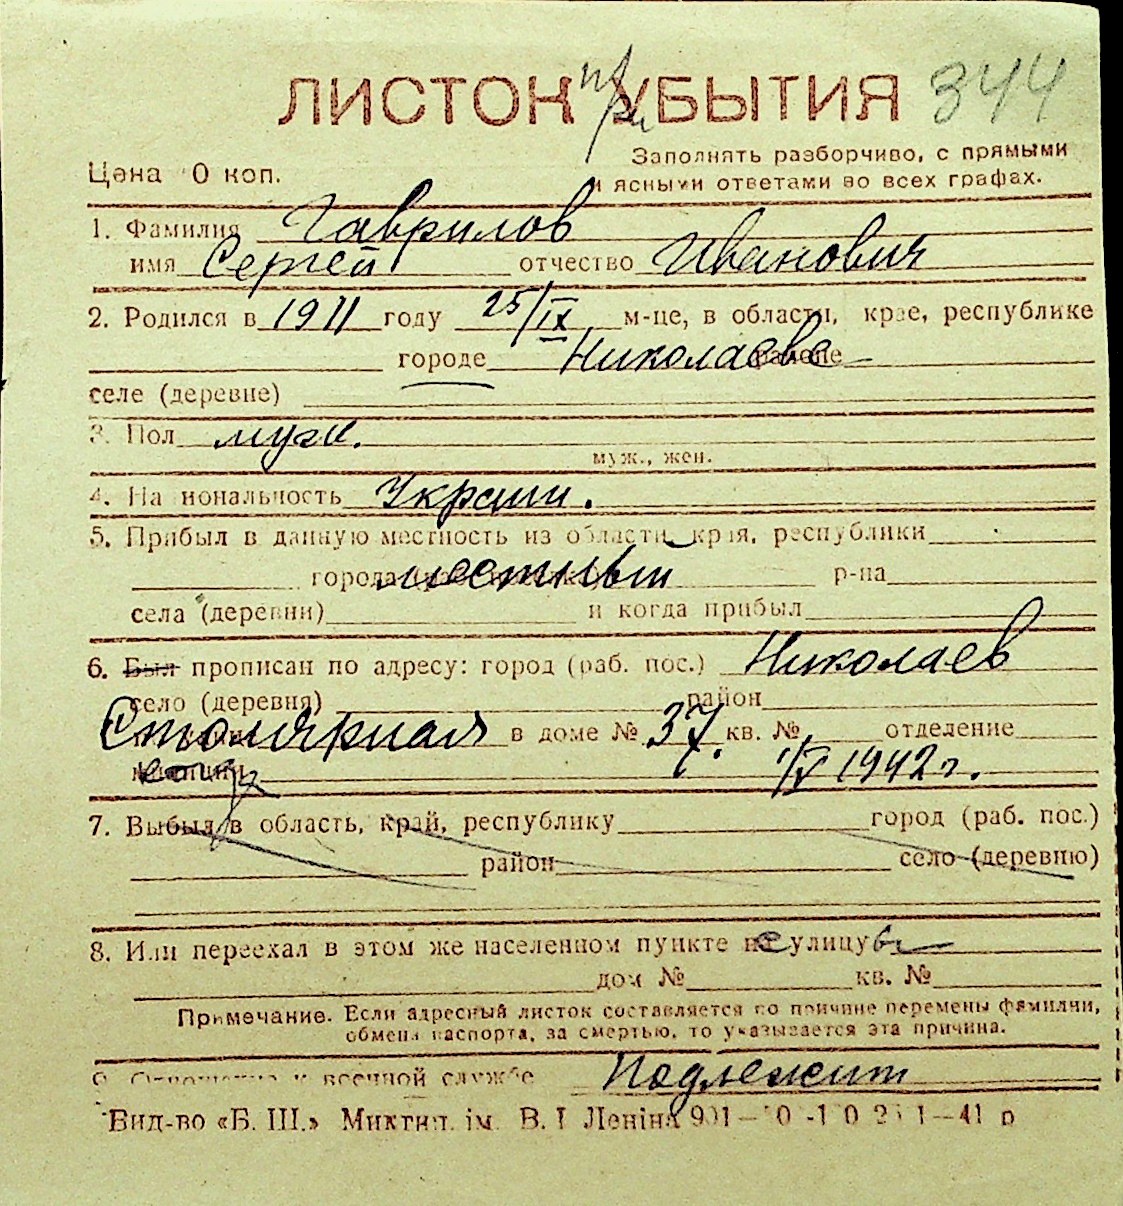 ЛИСТОК УБЫТИЯ 344
Цена 0 коп.
Заполнять разборчиво, с прямыми
и ясными ответами во всех графах.
1. Фамилия Гаврилов
имя Сергей отчество Иванович
2. Родился в 1911 году 25/IX м-це, в области, крае, республике
городе Николаеве районе
селе (деревне)
3. Пол муж.
муж., жен.
4. Национальность Украин.
5. Прибыл в данную местность из области, края, республики
города местный р-на
села (деревни) и когда прибыл
6. Был прописан по адресу: город (раб. пос.) Николаев
село (деревня) район
Столярная в доме № 37. кв. № отделение
милиции 1942 г.
7. Выбыл в область, край, республику город (раб. пос.)
район село (деревню)
8. Или переехал в этом же населенном пункте на улицу
дом № кв. №
Примечание. Если адресный листок составляется по причине перемены фамилии,
обмена паспорта, за смертью, то указывается эта причина.
9. Отношение к военной службе Подлежит
Вид-во «Б. Ш.» ім. В. І Леніна